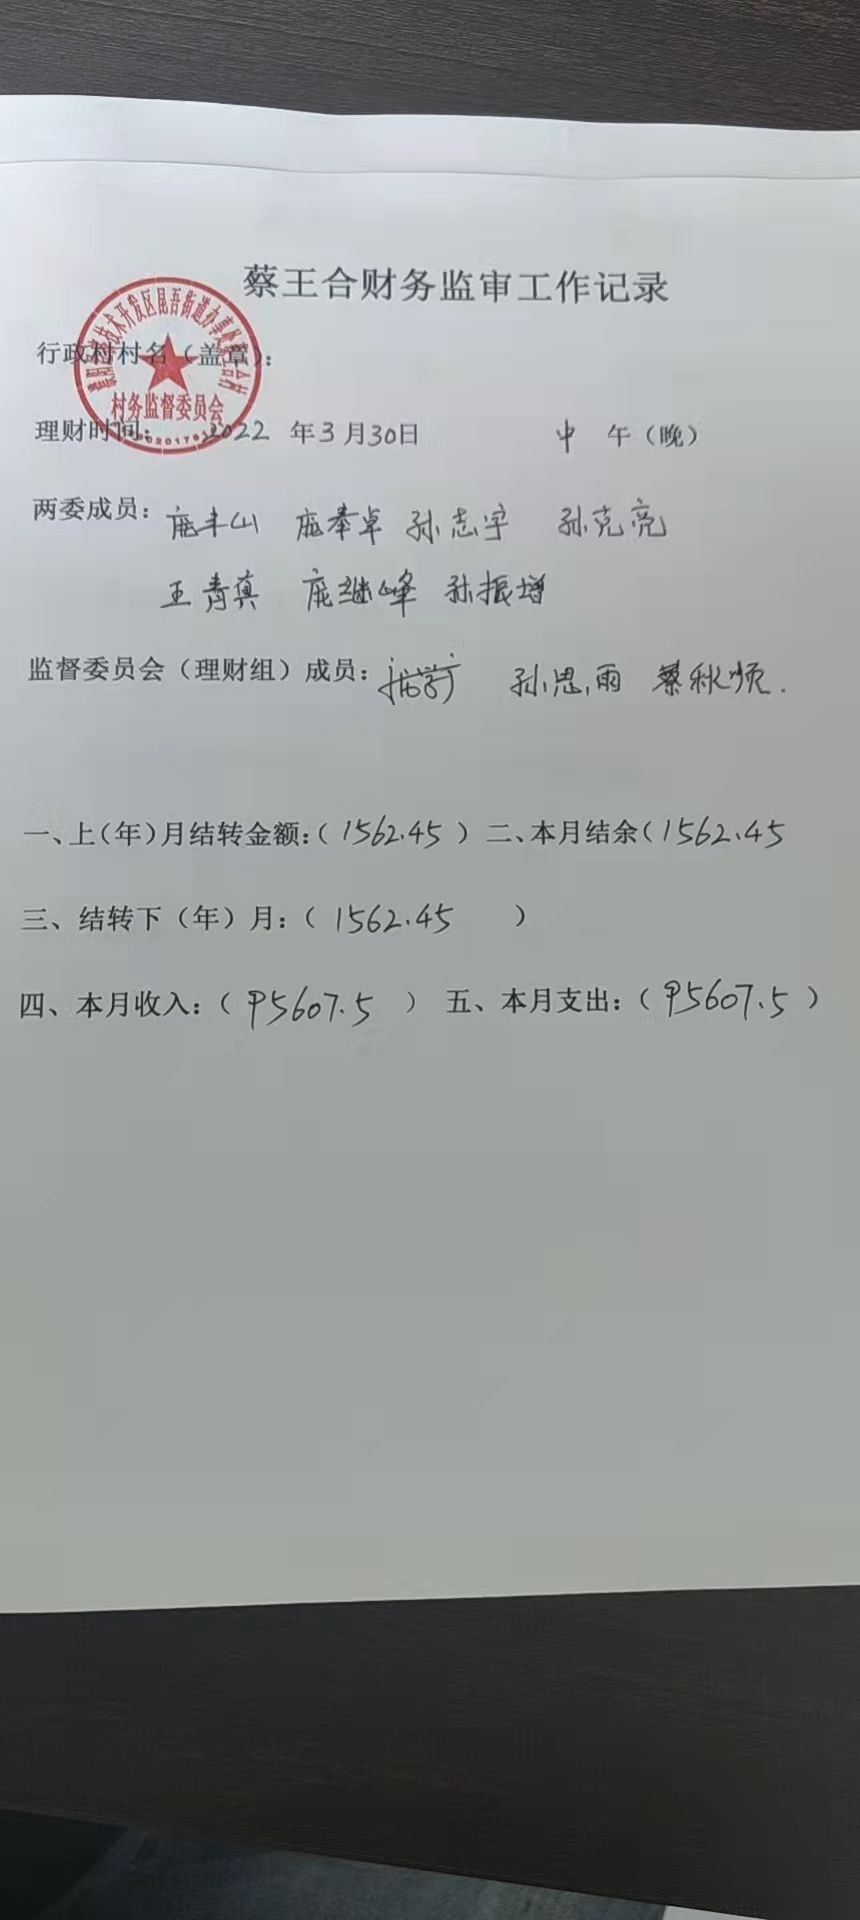 蔡王合财务监审工作记录
行政村村名（盖章）：
技术开发区昆吾街道办事处
村务监督委员会
理财时间： 2022 年 3 月 30日 中 午（晚）
两委成员： 庞丰山 庞奉卓 孙志宇 孙克亮
王青真 庞继峰 孙振增
监督委员会（理财组）成员： 孙思雨 蔡秋顺.
一、上（年）月结转金额：（1562.45 ）二、本月结余（1562.45
三、结转下（年）月：（ 1562.45 ）
四、本月收入：（ 95607.5 ） 五、本月支出：（ 95607.5 ）